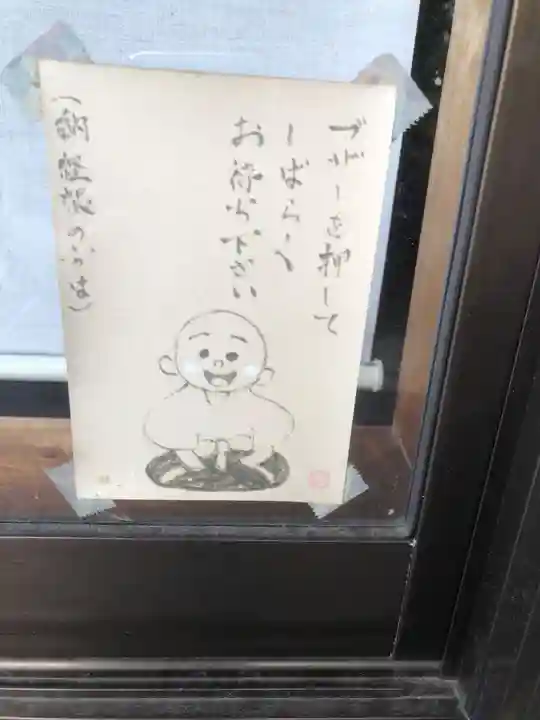 ブザーを押して
しばらく
お待ち下さい
(納経帳の方は)